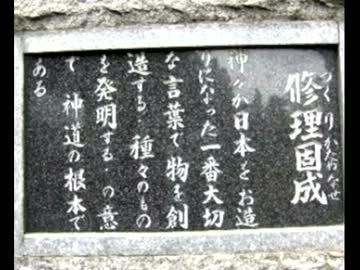 修理固成
神々が日本をお造
りになった一番大切
な言葉で物を創
造する・種々のもの
を発明する・の意
で 神道の根本で
ある